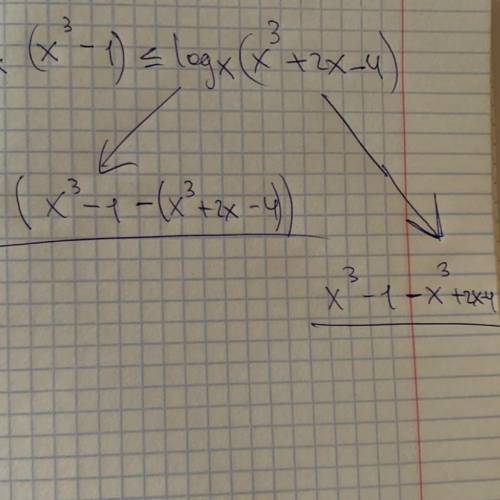 x (x³ - 1) ≤ logx(x³ + 2x - 4)
(x³ - 1 - (x³ + 2x - 4))
x³ - 1 - x³ + 2x - 4